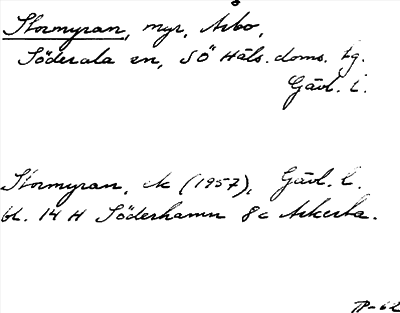 Stormyran, myr, Arbo,
Söderala sn, SÖ Häls. doms. tg.
Gävl. l.
Stormyran, ek (1957), Gävl. l.
bl. 14 H Söderhamn 8c Askesta.
-62